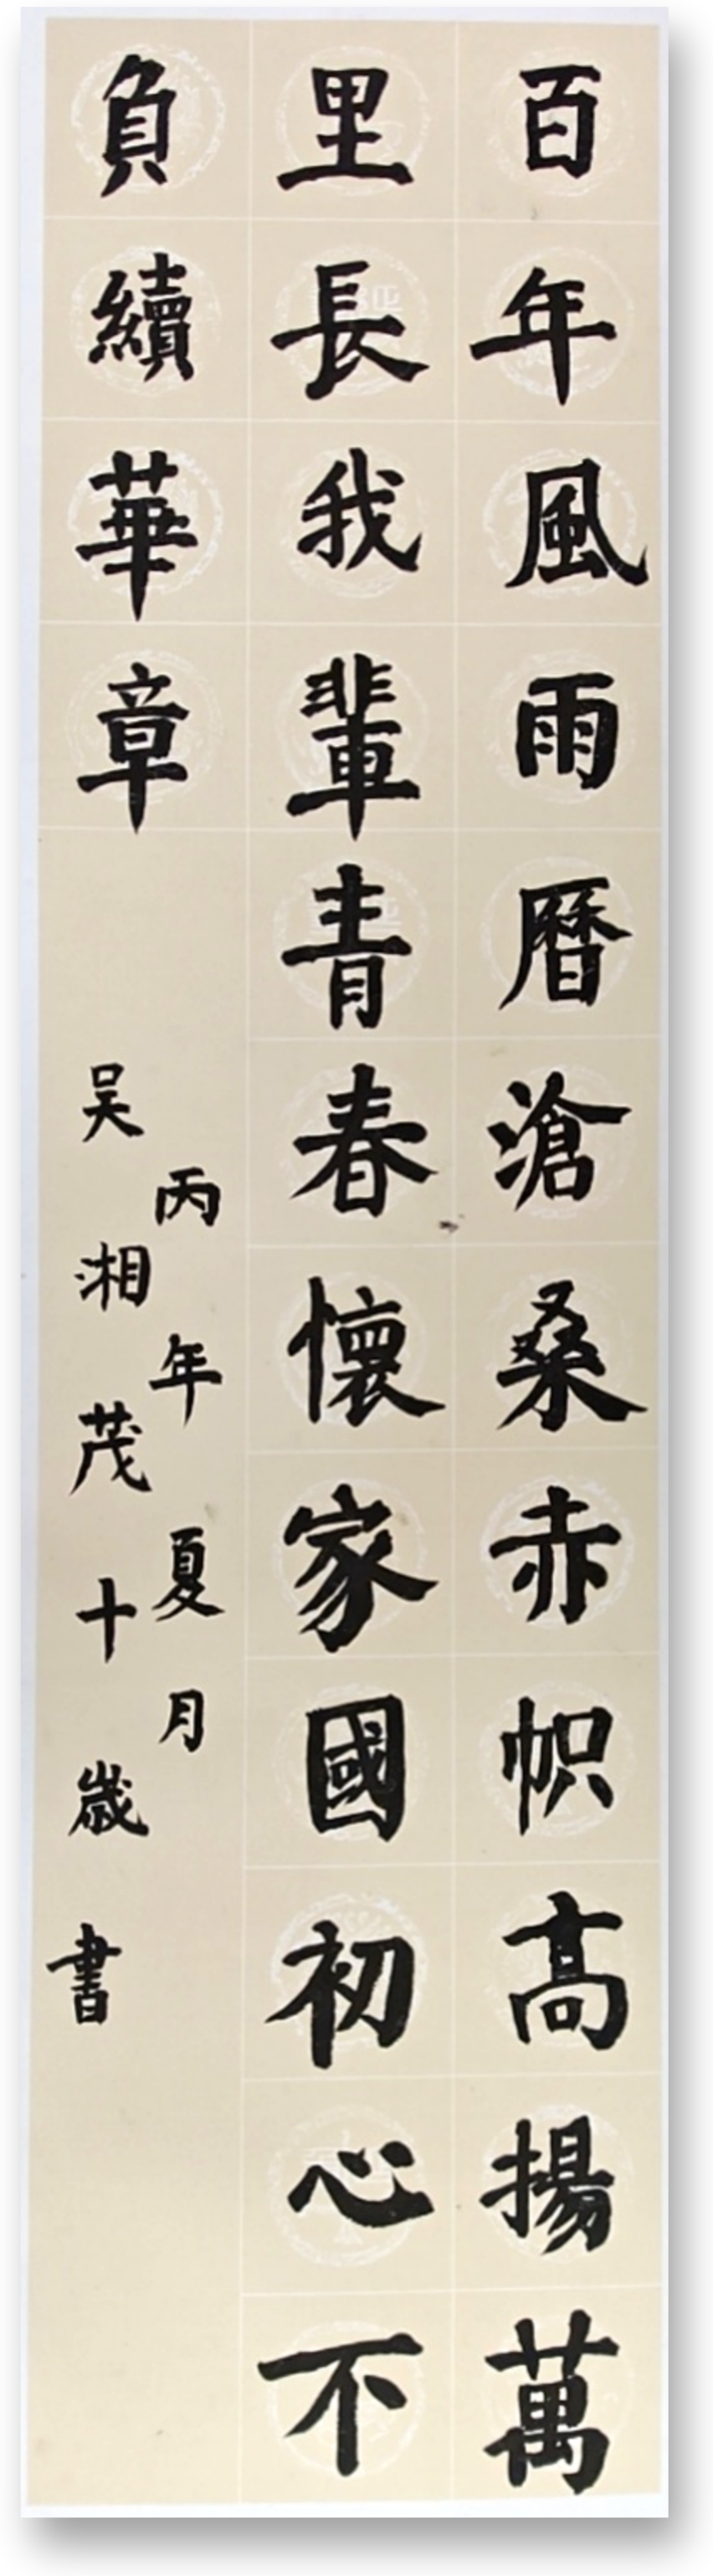 百年風雨曆滄桑赤帜高揚萬
里長我輩青春懷家國初心不
負續華章
丙年夏月
吴湘茂十歲書